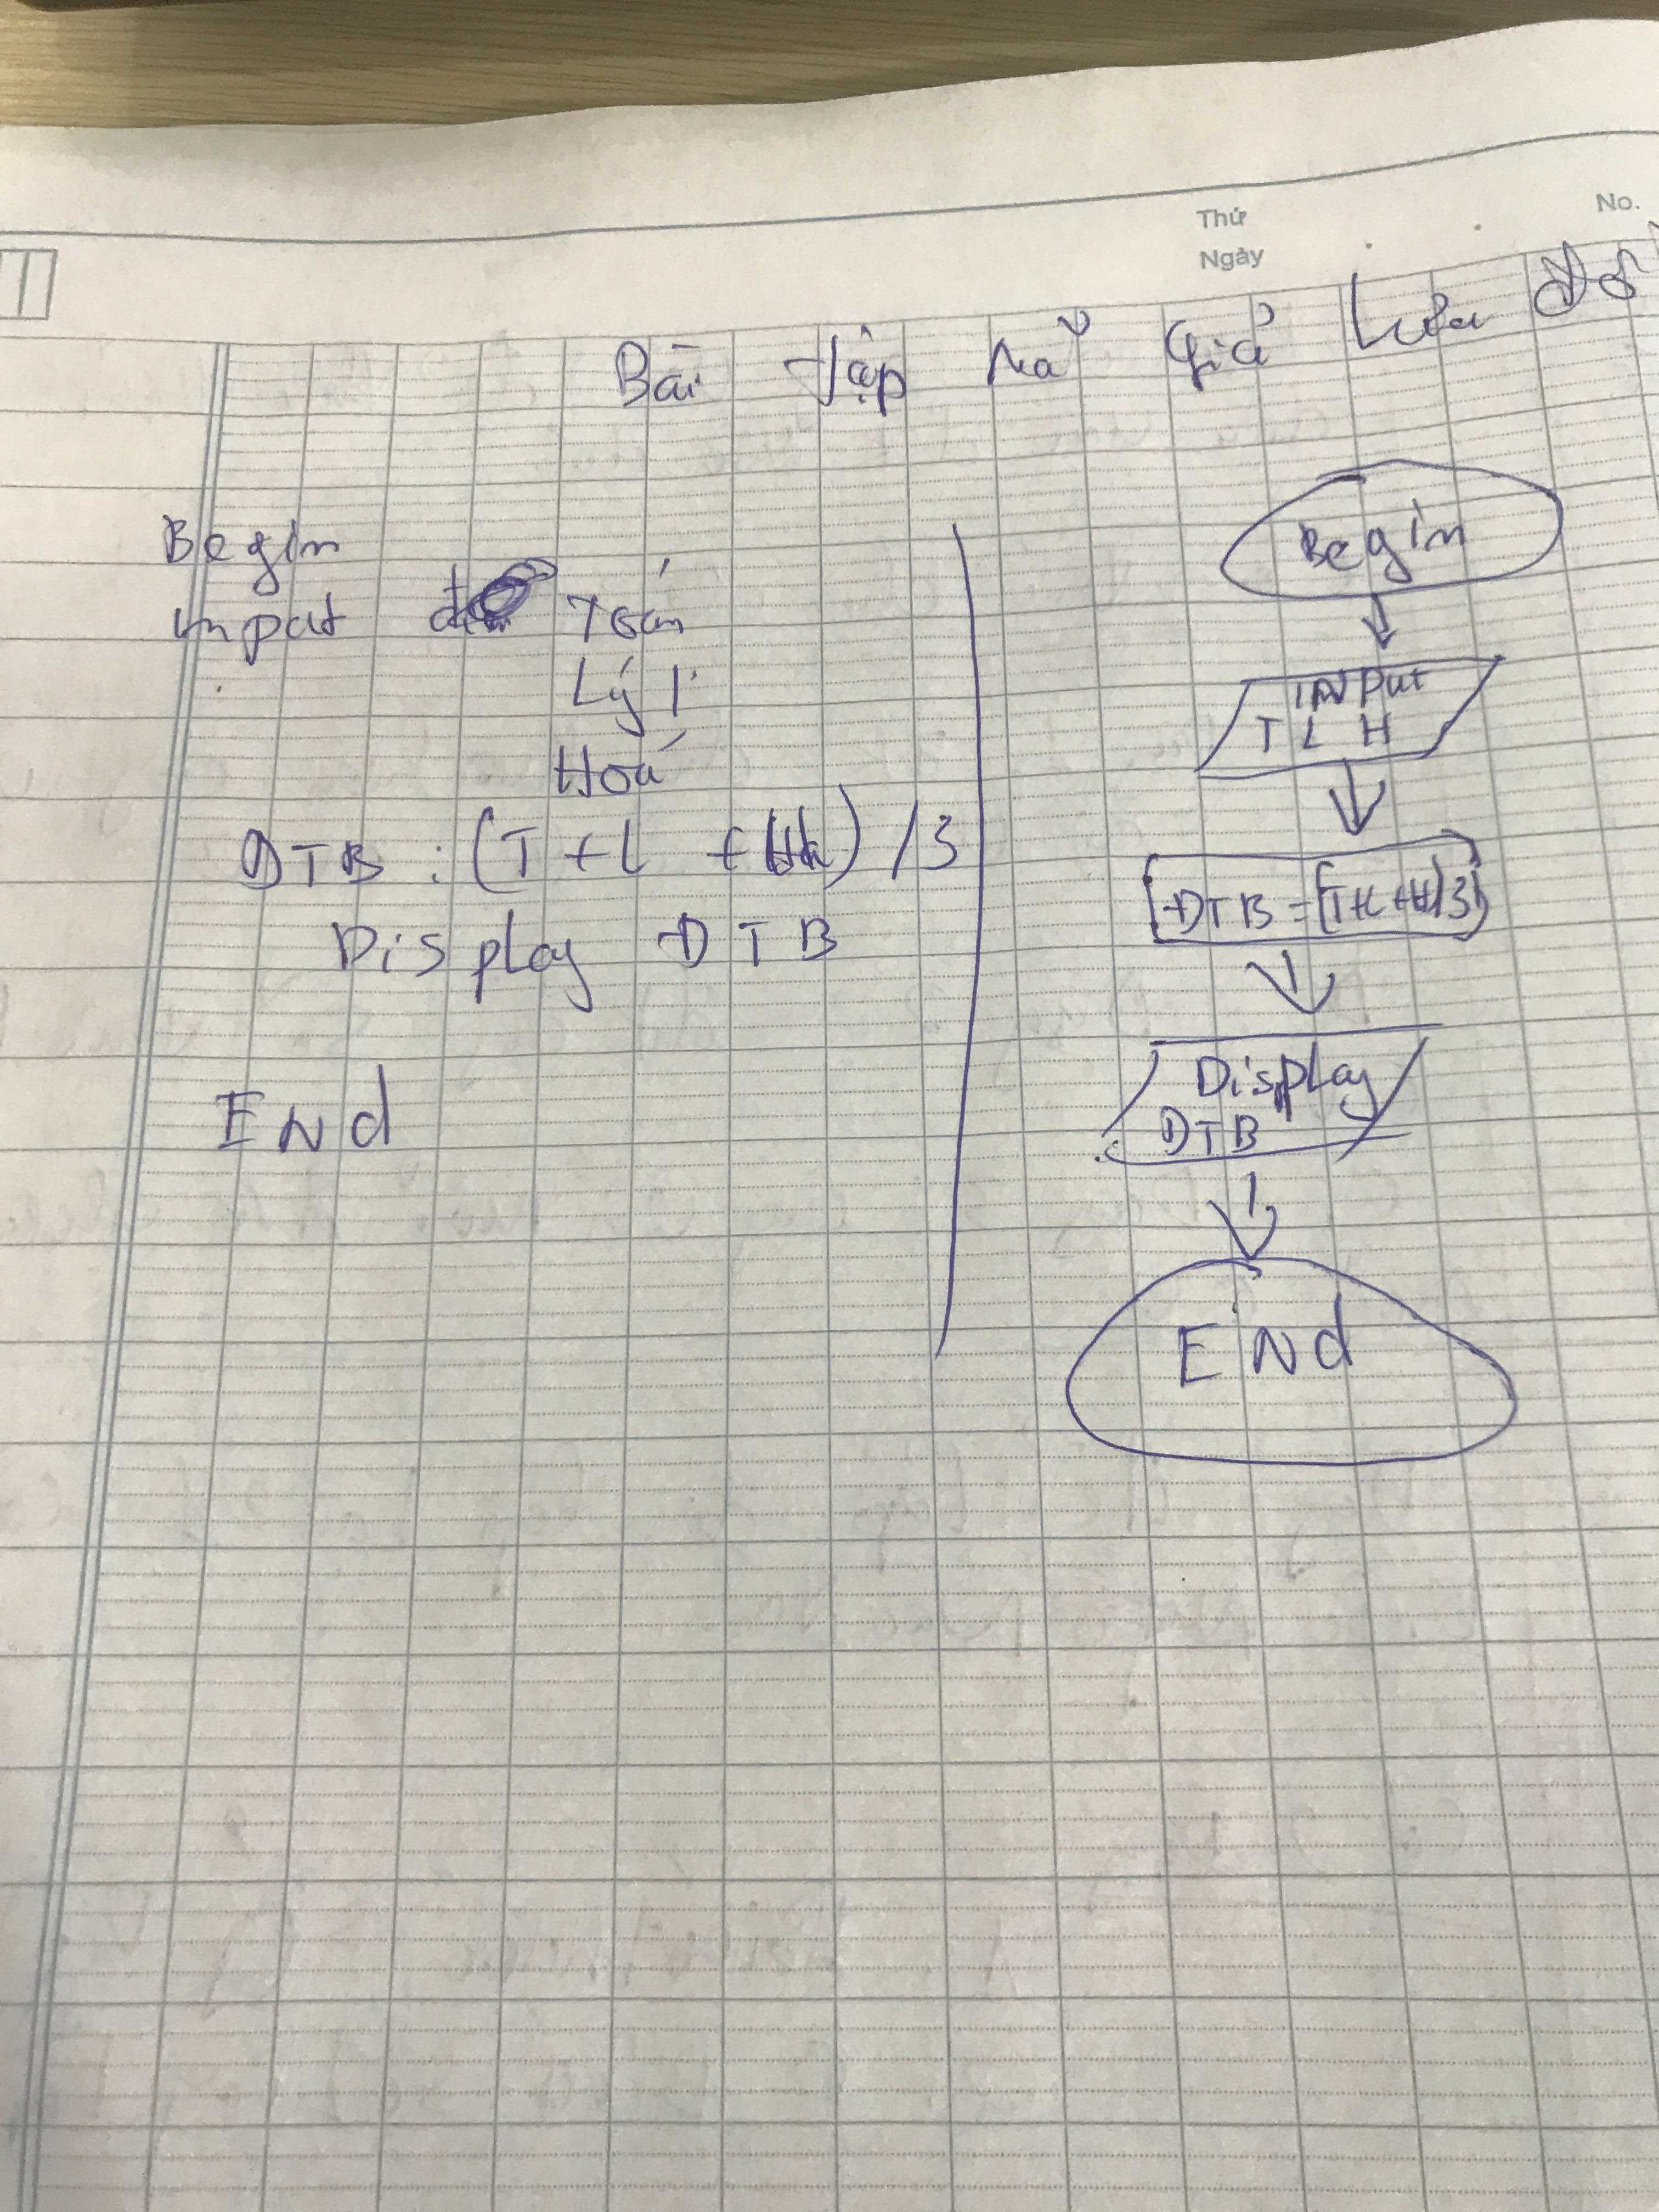 Thứ
No.
Ngày
Bài tập mã giả Lưu đồ
Begin
Input Toán
Lý
Hoá
ĐTB : (T + L + H) / 3
Display ĐTB
End
Begin
INPut
T L H
ĐTB = (T+L+H)/3
Display
ĐTB
End